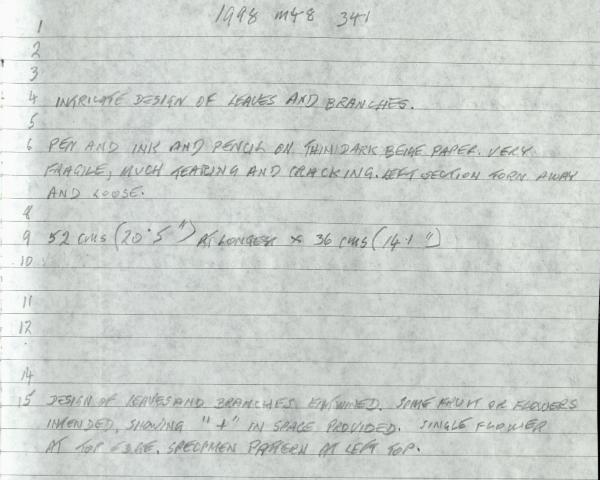 1998 M48 341
1
2
3
4 INTRICATE DESIGN OF LEAVES AND BRANCHES.
5
6 PEN AND INK AND PENCIL ON THIN DARK BEIGE PAPER. VERY
FRAGILE, MUCH TEARING AND CRACKING. LEFT SECTION TORN AWAY
AND LOOSE.
8
9 52 cms (20.5") AT LONGEST x 36 cms (14.1")
10
11
12
14
15 DESIGN OF LEAVES AND BRANCHES ENTWINED. SOME FRUIT OR FLOWERS
INTENDED, SHOWING "+" IN SPACE PROVIDED. SINGLE FLOWER
AT TOP EDGE. SPECIMEN PATTERN AT LEFT TOP.